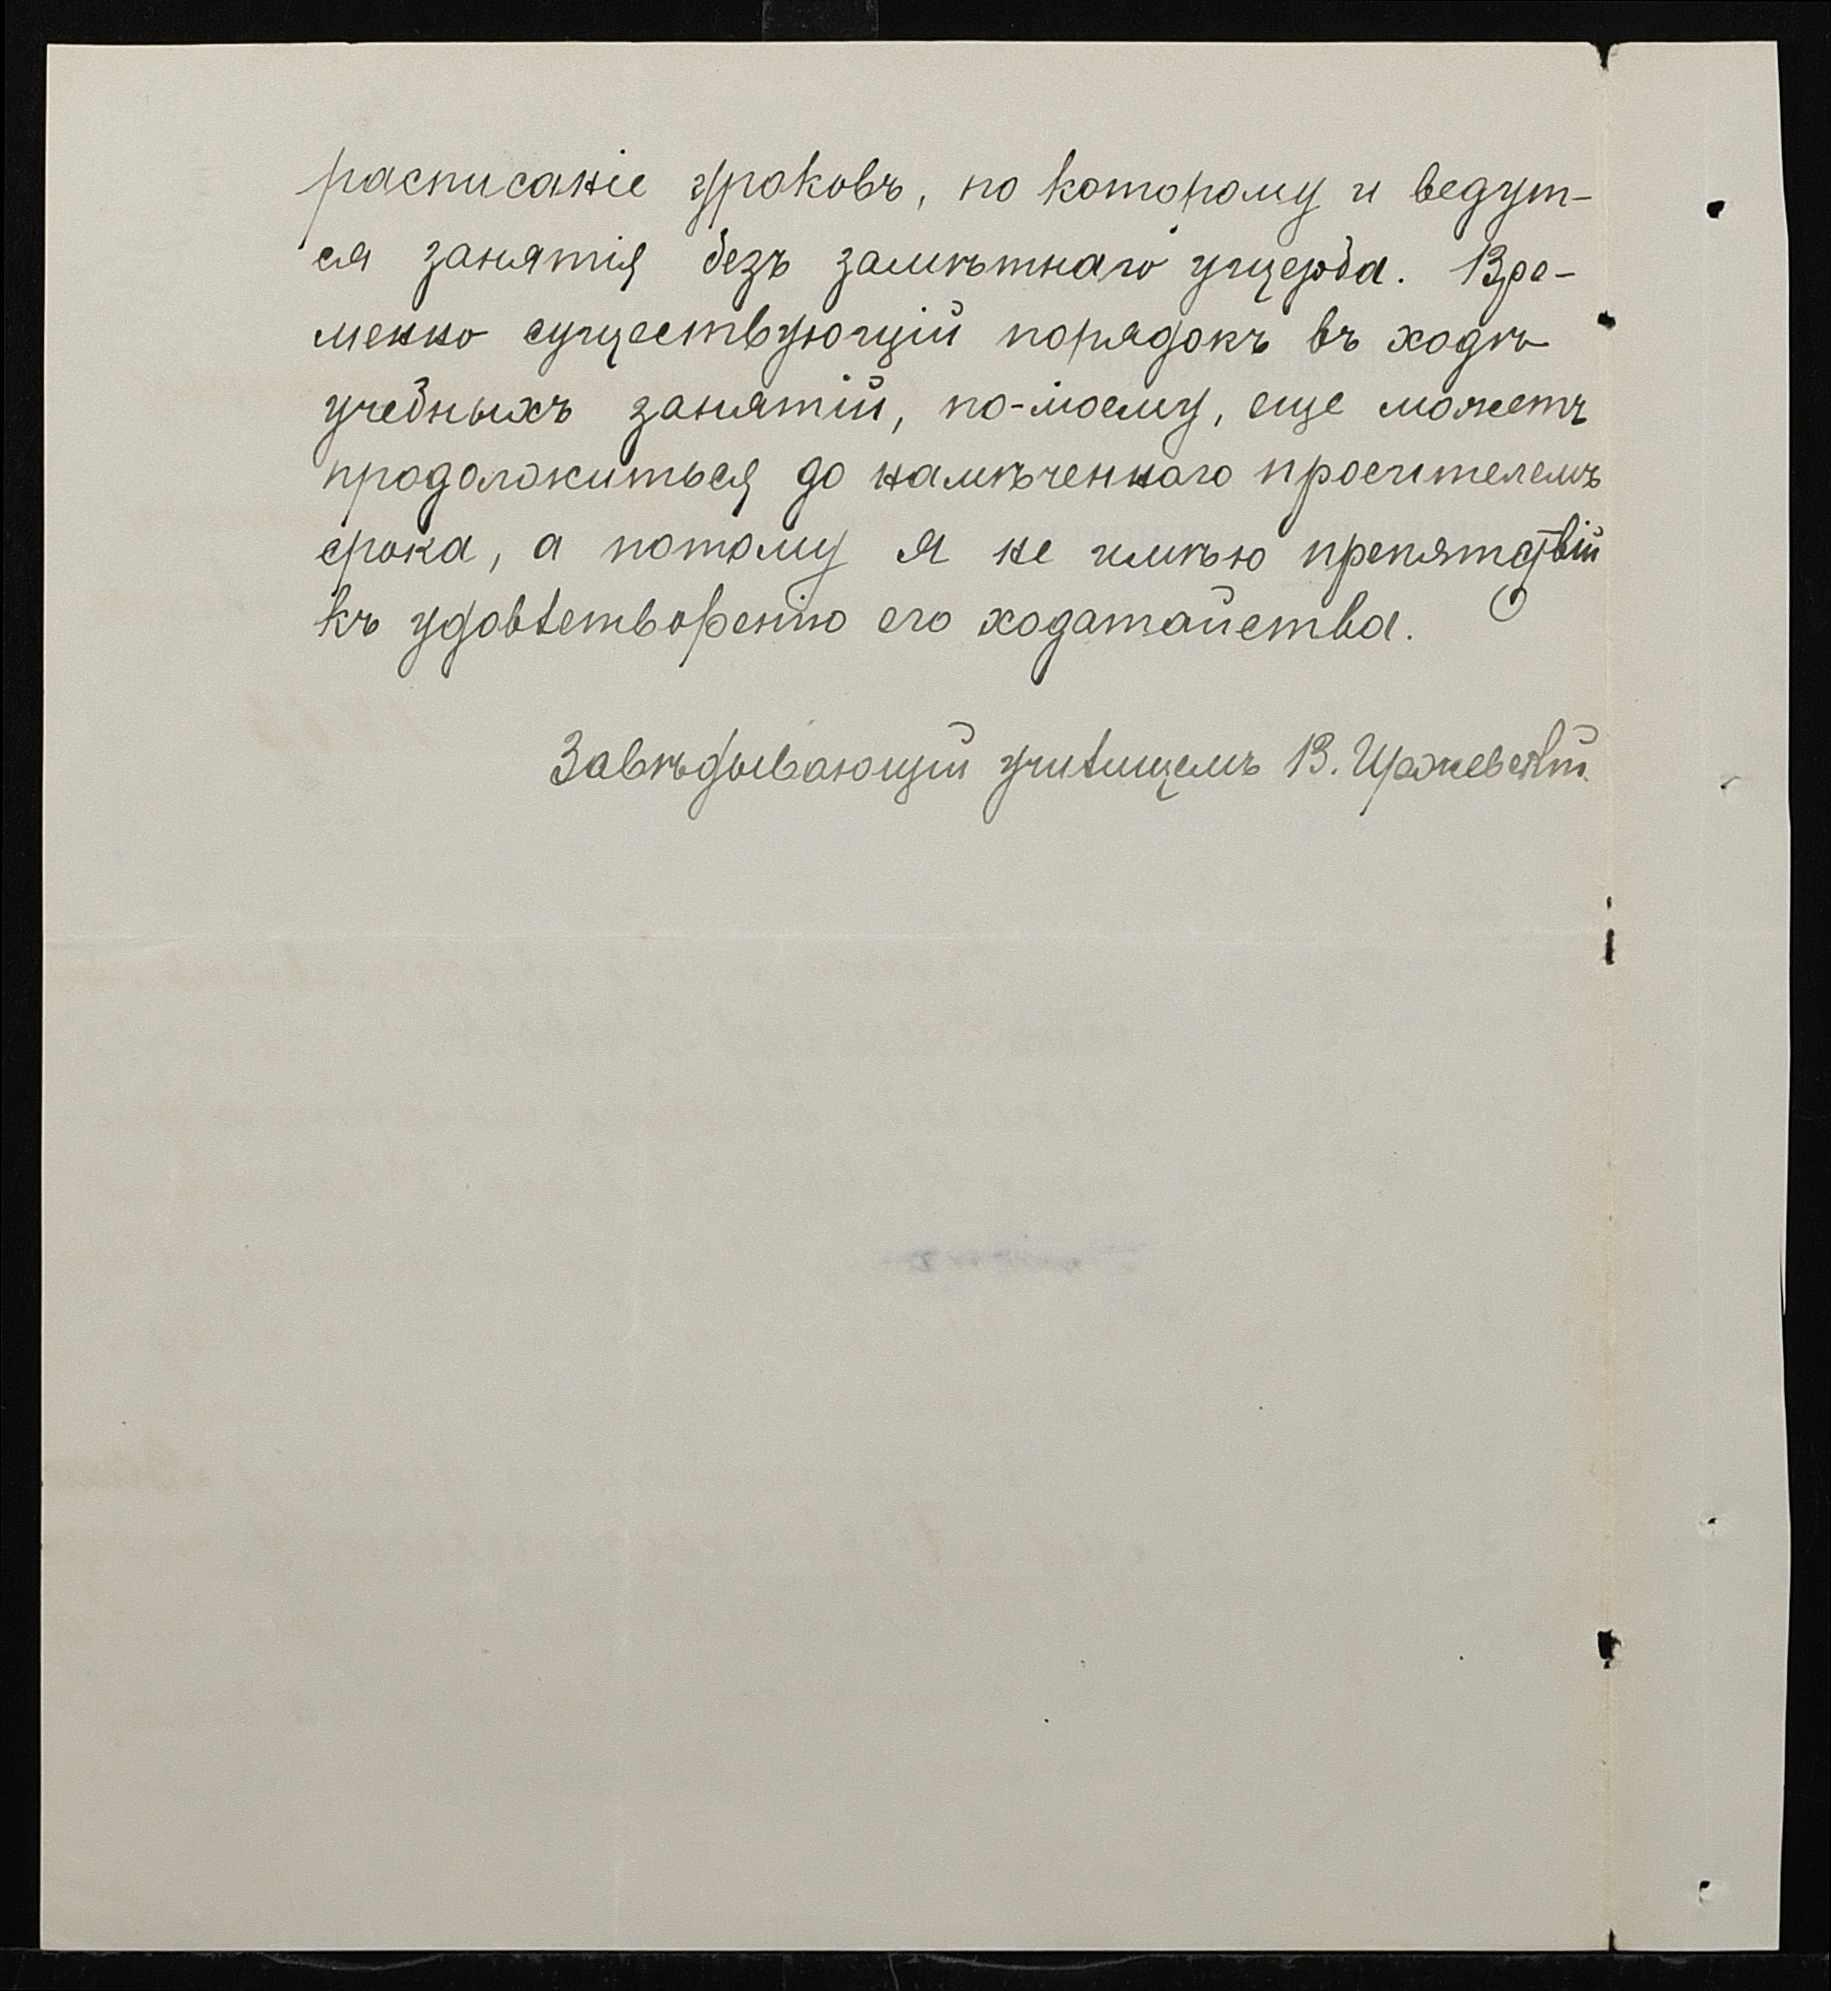 расписаніе уроковъ, по которому и ведут-
ся занятія безъ замѣтнаго ущерба. Вре-
менно существующій порядокъ въ ходѣ
учебныхъ занятій, по-моему, еще можетъ
продолжиться до намѣченнаго просителемъ
срока, а потому я не имѣю препятствій
къ удовлетворенію его ходатайства.
Завѣдывающій училищемъ В.